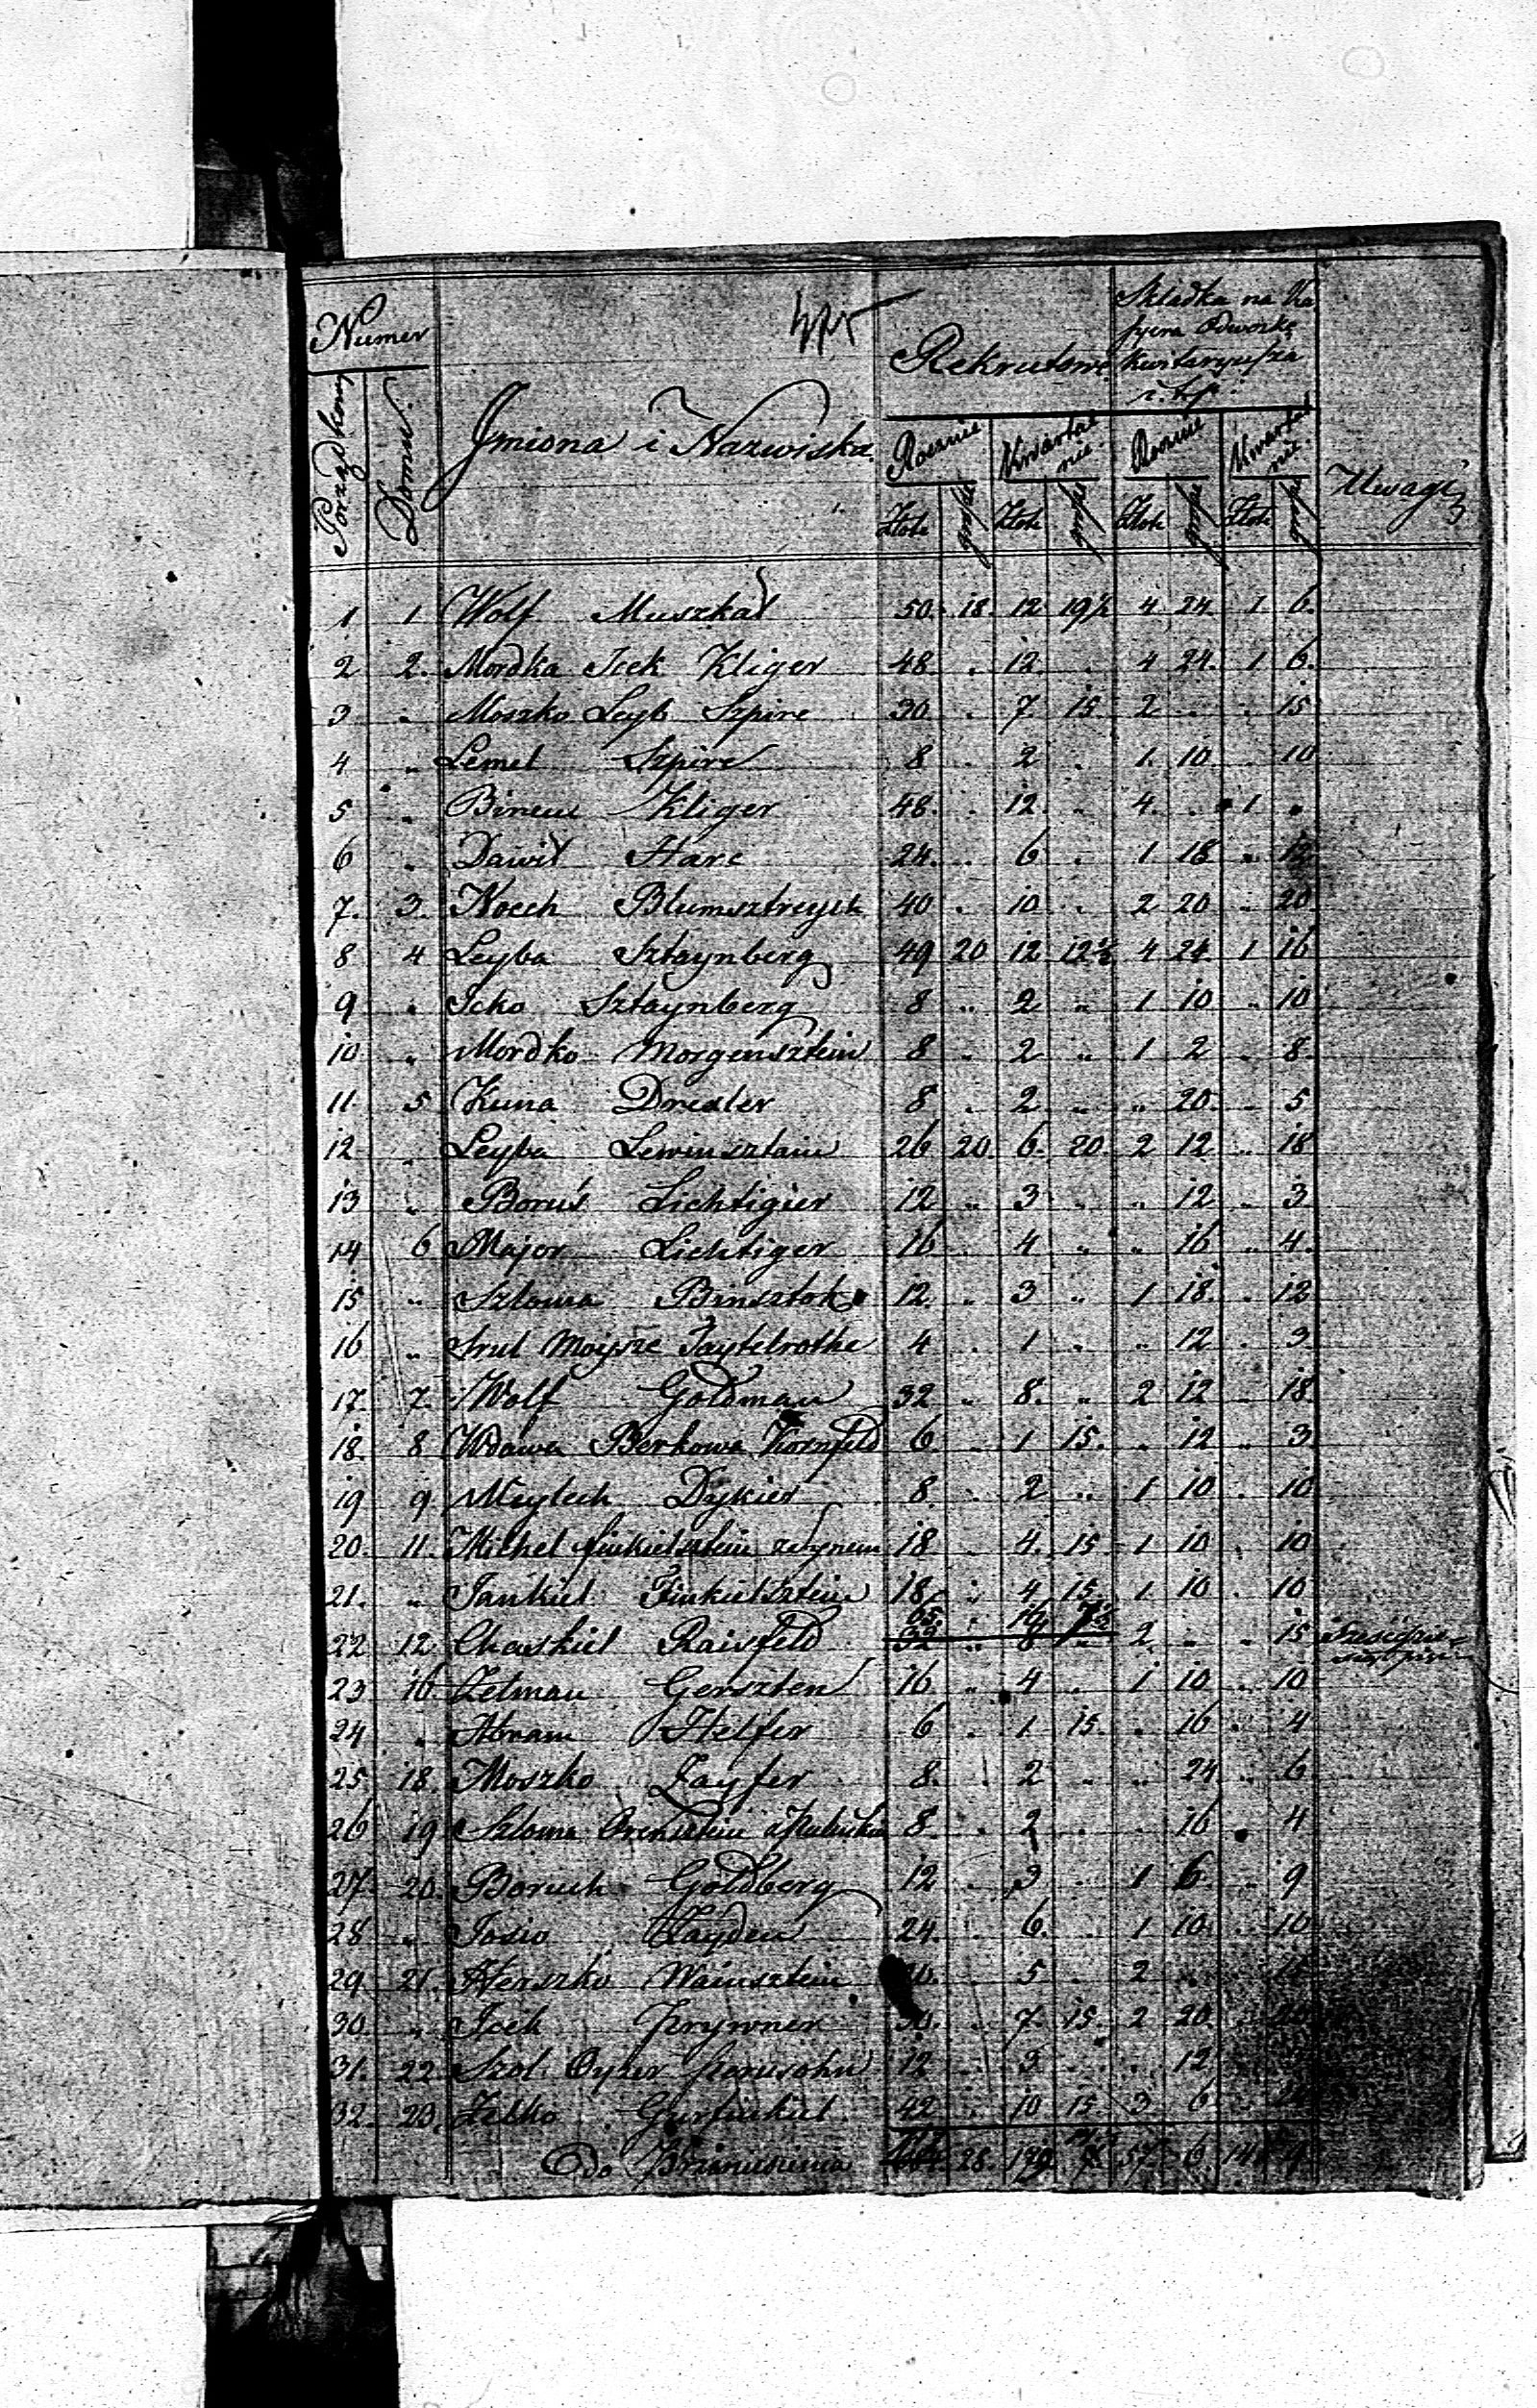 Numer
Porządkowy
Domu.
Jmiona i Nazwiska.
Rekrutowe
Składka na
Kwitaryusza
Rocznie
Kwartalnie
Rocznie
Kwartalnie
Uwagi
Złote grosze Złote grosze Złote grosze Złote grosze
1 1 Wolf Muszkat 50. 18 12 19½ 4 24 1 6.
2 2. Mordka Icek Kliger 48 . 12 . 4 24. 1 6.
3 " Moszko Leyb Szpire 30 . 7. 15. 2 . . 15
4 " Lemel Szpire 8 . 2 . 1. 10 . 10
5 " Kliger 48. . 12. . 4. . 1 .
6 " Dawid Harc 24. . 6 . 1 18 " 12
7. 3. Noech 40 . 10 . 2 20 " 20
8 4 Leyba Sztaynberg 49 20 12 12½ 4 24 1 16
9 " Icko Sztaynberg 8 " 2 " 1 10 " 10
10 " Mordko Morgensztein 8 " 2 " 1 2 . 8.
11. 5 Kuna Dresler 8 . 2 " " 20 . 5
12 " Leyba Lewinsztain 26 20 6. 20. 2 12 " 18
13 " Boruś Lichtigier 12 " 3 " " 12 " 3
14 6 Major Lichtiger 16 . 4 " " 16 " 4.
15 " Szloma Binsztok 12. " 3 " 1 18. " 12
16 " Srul Moysze Taytelrothe 4 . 1 " " 12 . 3
17. 7. Wolf Goldman 32 " 8. " 2 12 . 18
18. 8 Wdowa Berkowa Kornfeld 6 . 1 15. " 12 " 3
19 9. Meylech Dykier 8. . 2 " 1 10 . 10
20. 11. Michel Finkielsztein z synem 18 . 4. 15 1 10 . 10
21. " Jankiel Finkielsztein 18 " 4 15 1 10 . 10
22 12 Chaskiel Raisfeld 65. 32 8 2 . . 15
23 16 Zelman Gerszten 16 " 4 . 1 10 . 10
24 " Abram Helfer 6 . 1 15. . 16 . 4
25 18. Moszko Zayfer 8. . 2 " " 24 " 6
26 19 Szloma Orensztein 8. . 2 . . 16 . 4
27. 20. Boruch Goldberg 12 . 3 . 1 6. . 9
28 " Josio Zayden 24. . 6. . 1 10. . 10
29 21. Herszko Wainsztein . 5 . 2 . .
30. " Icek Prywner 30. . 7. 15. 2 20
31. 22 Szol Oyzer 12 . 3 . . 12
32. 23. Zelko Gurfinkiel 42 . 10 15 3 6
Do Przeniesienia 28. 57. 6 14